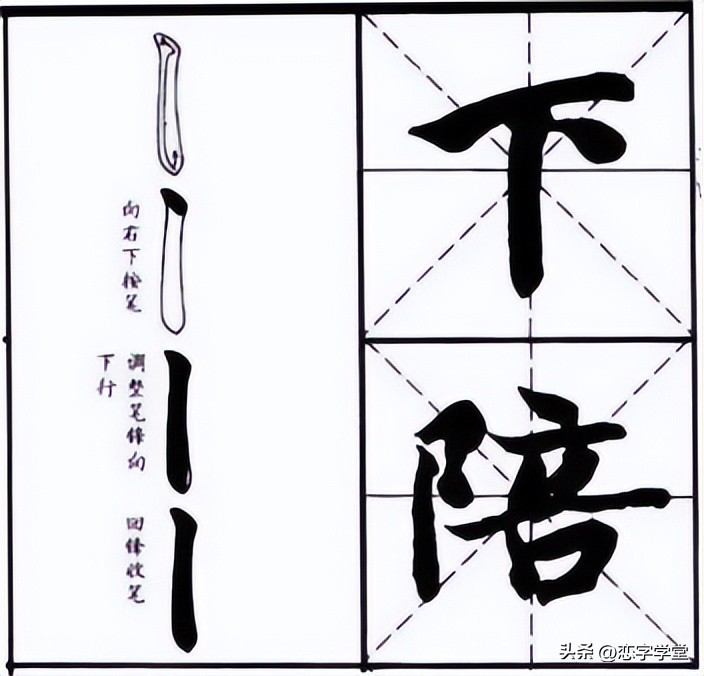 向右下按笔
调整笔锋向
下行
回锋收笔
下
陪
头条 @恋字学堂